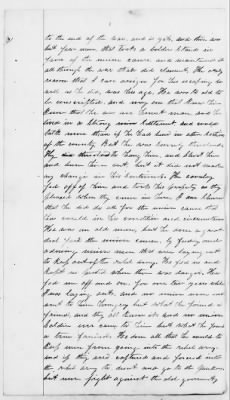 to the end of the war, and is yet, and there are
but few men that took a bolder stand in
favor of the union cause and maintained it
all through the war that did claimant. The only
reason that I can assign for his escaping so
well as he did, was this age. He was to old to
be conscripted. and every one that knew him
knew that he was an honest man, and he
lived in a strong union settlement and under
took more than if he had lived in other section
of the country. But he was sorely threatened
They threatened to hang him, and shoot him
and burn him out but it did not make
any change in his sentiments. The cavalry
fed off of him and took his property as they
pleased when they came in here. I am know
that he did do all for the union cause that
he could in his condition and circumstances
He was an old man, but he done a great
deal for the union cause, by feeding and
advising union men that were laying out
to keep out of the rebel army. He fed us and
kept us posted when there was danger. He
fed me off and on for over two years while
I was laying out, and no union man ever
went to him, but what he found a
friend, and they all knew it and no union
soldier ever came to him but what he found
a true friend. He done all that he could to
keep men from going into the rebel army
and if they were captured and forced into
the rebel army to desert and go to the yankees
but never fight against the old government